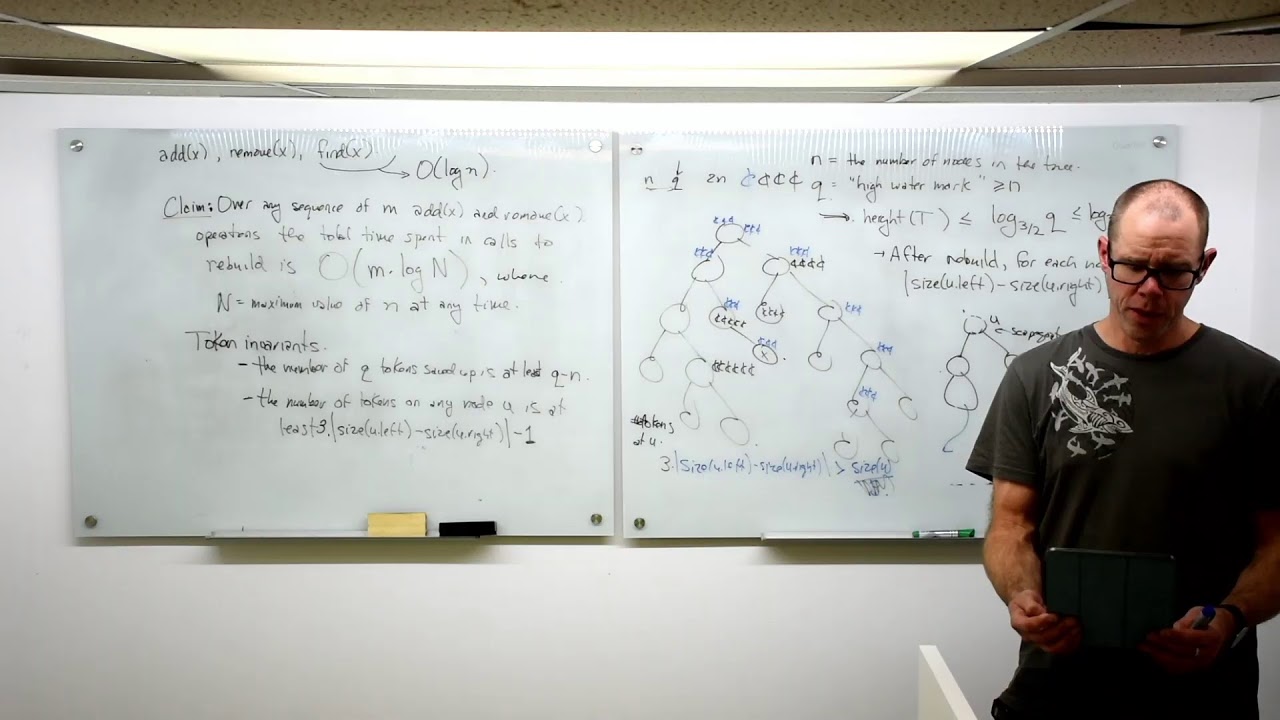 add(x), remove(x), find(x)
O(log n).
Claim: Over any sequence of m add(x) and remove(x)
operations the total time spent in calls to
rebuild is O(m·log N), where
N = maximum value of n at any time.
Token invariants.
- the number of q tokens saved up is at least q-n.
- the number of tokens on any node u is at
least 3·|size(u.left) - size(u.right)| - 1
n q 2n ¢¢¢¢
n = the number of nodes in the tree.
q = "high water mark" ≥ n
→ height(T) ≤ log3/2 q ≤ log
→ After rebuild, for each
|size(u.left) - size(u.right)|
u
x
tokens
at u.
3·|size(u.left) - size(u.right)| > size(u)